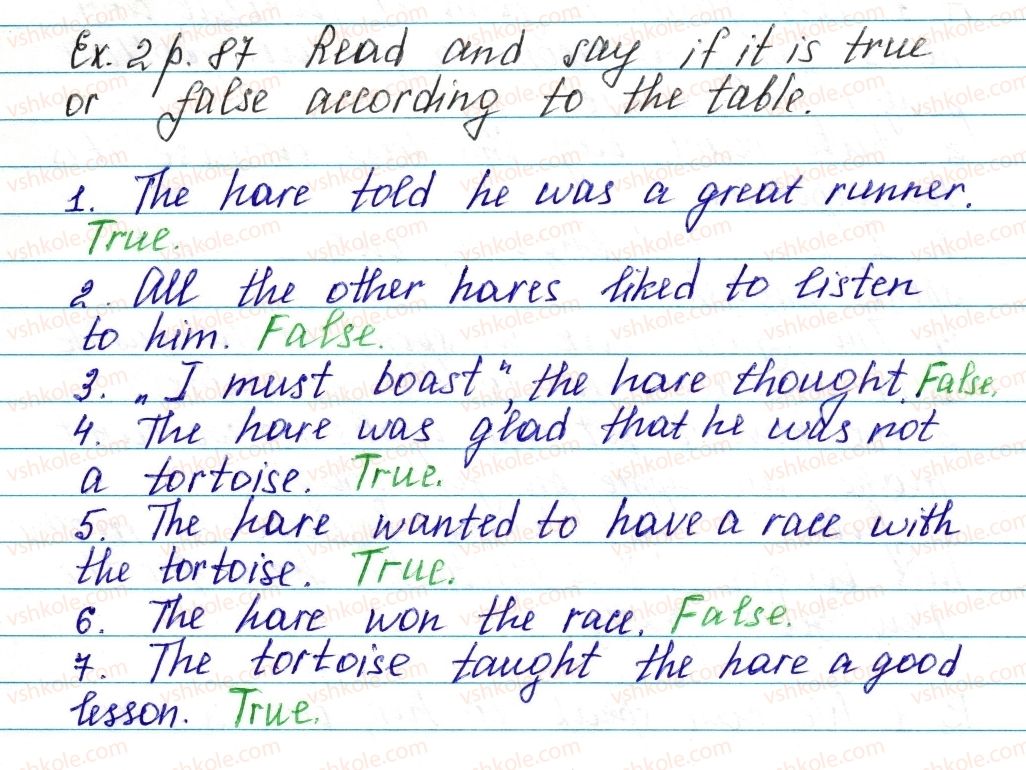 Ex. 2 p. 87 Read and say if it is true
or false according to the table.
1. The hare told he was a great runner.
True.
2. All the other hares liked to listen
to him. False.
3. „I must boast", the hare thought. False.
4. The hare was glad that he was not
a tortoise. True.
5. The hare wanted to have a race with
the tortoise. True.
6. The hare won the race. False.
7. The tortoise taught the hare a good
lesson. True.